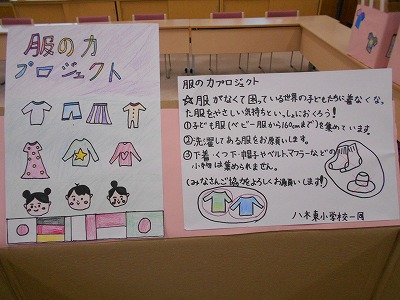 服の力
プロジェクト
服の力プロジェクト
☆服がなくて困っている世界の子どもたちに着なくなっ
た服をやさしい気持ちといっしょにおくろう!
①子ども服(ベビー服から160cmまで)を集めています。
②洗濯してある服をお願いします。
③下着・くつ下・帽子やベルトマフラーなどの
小物は集められません。
(みなさんご協力をよろしくお願いします!)
八木東小学校一同